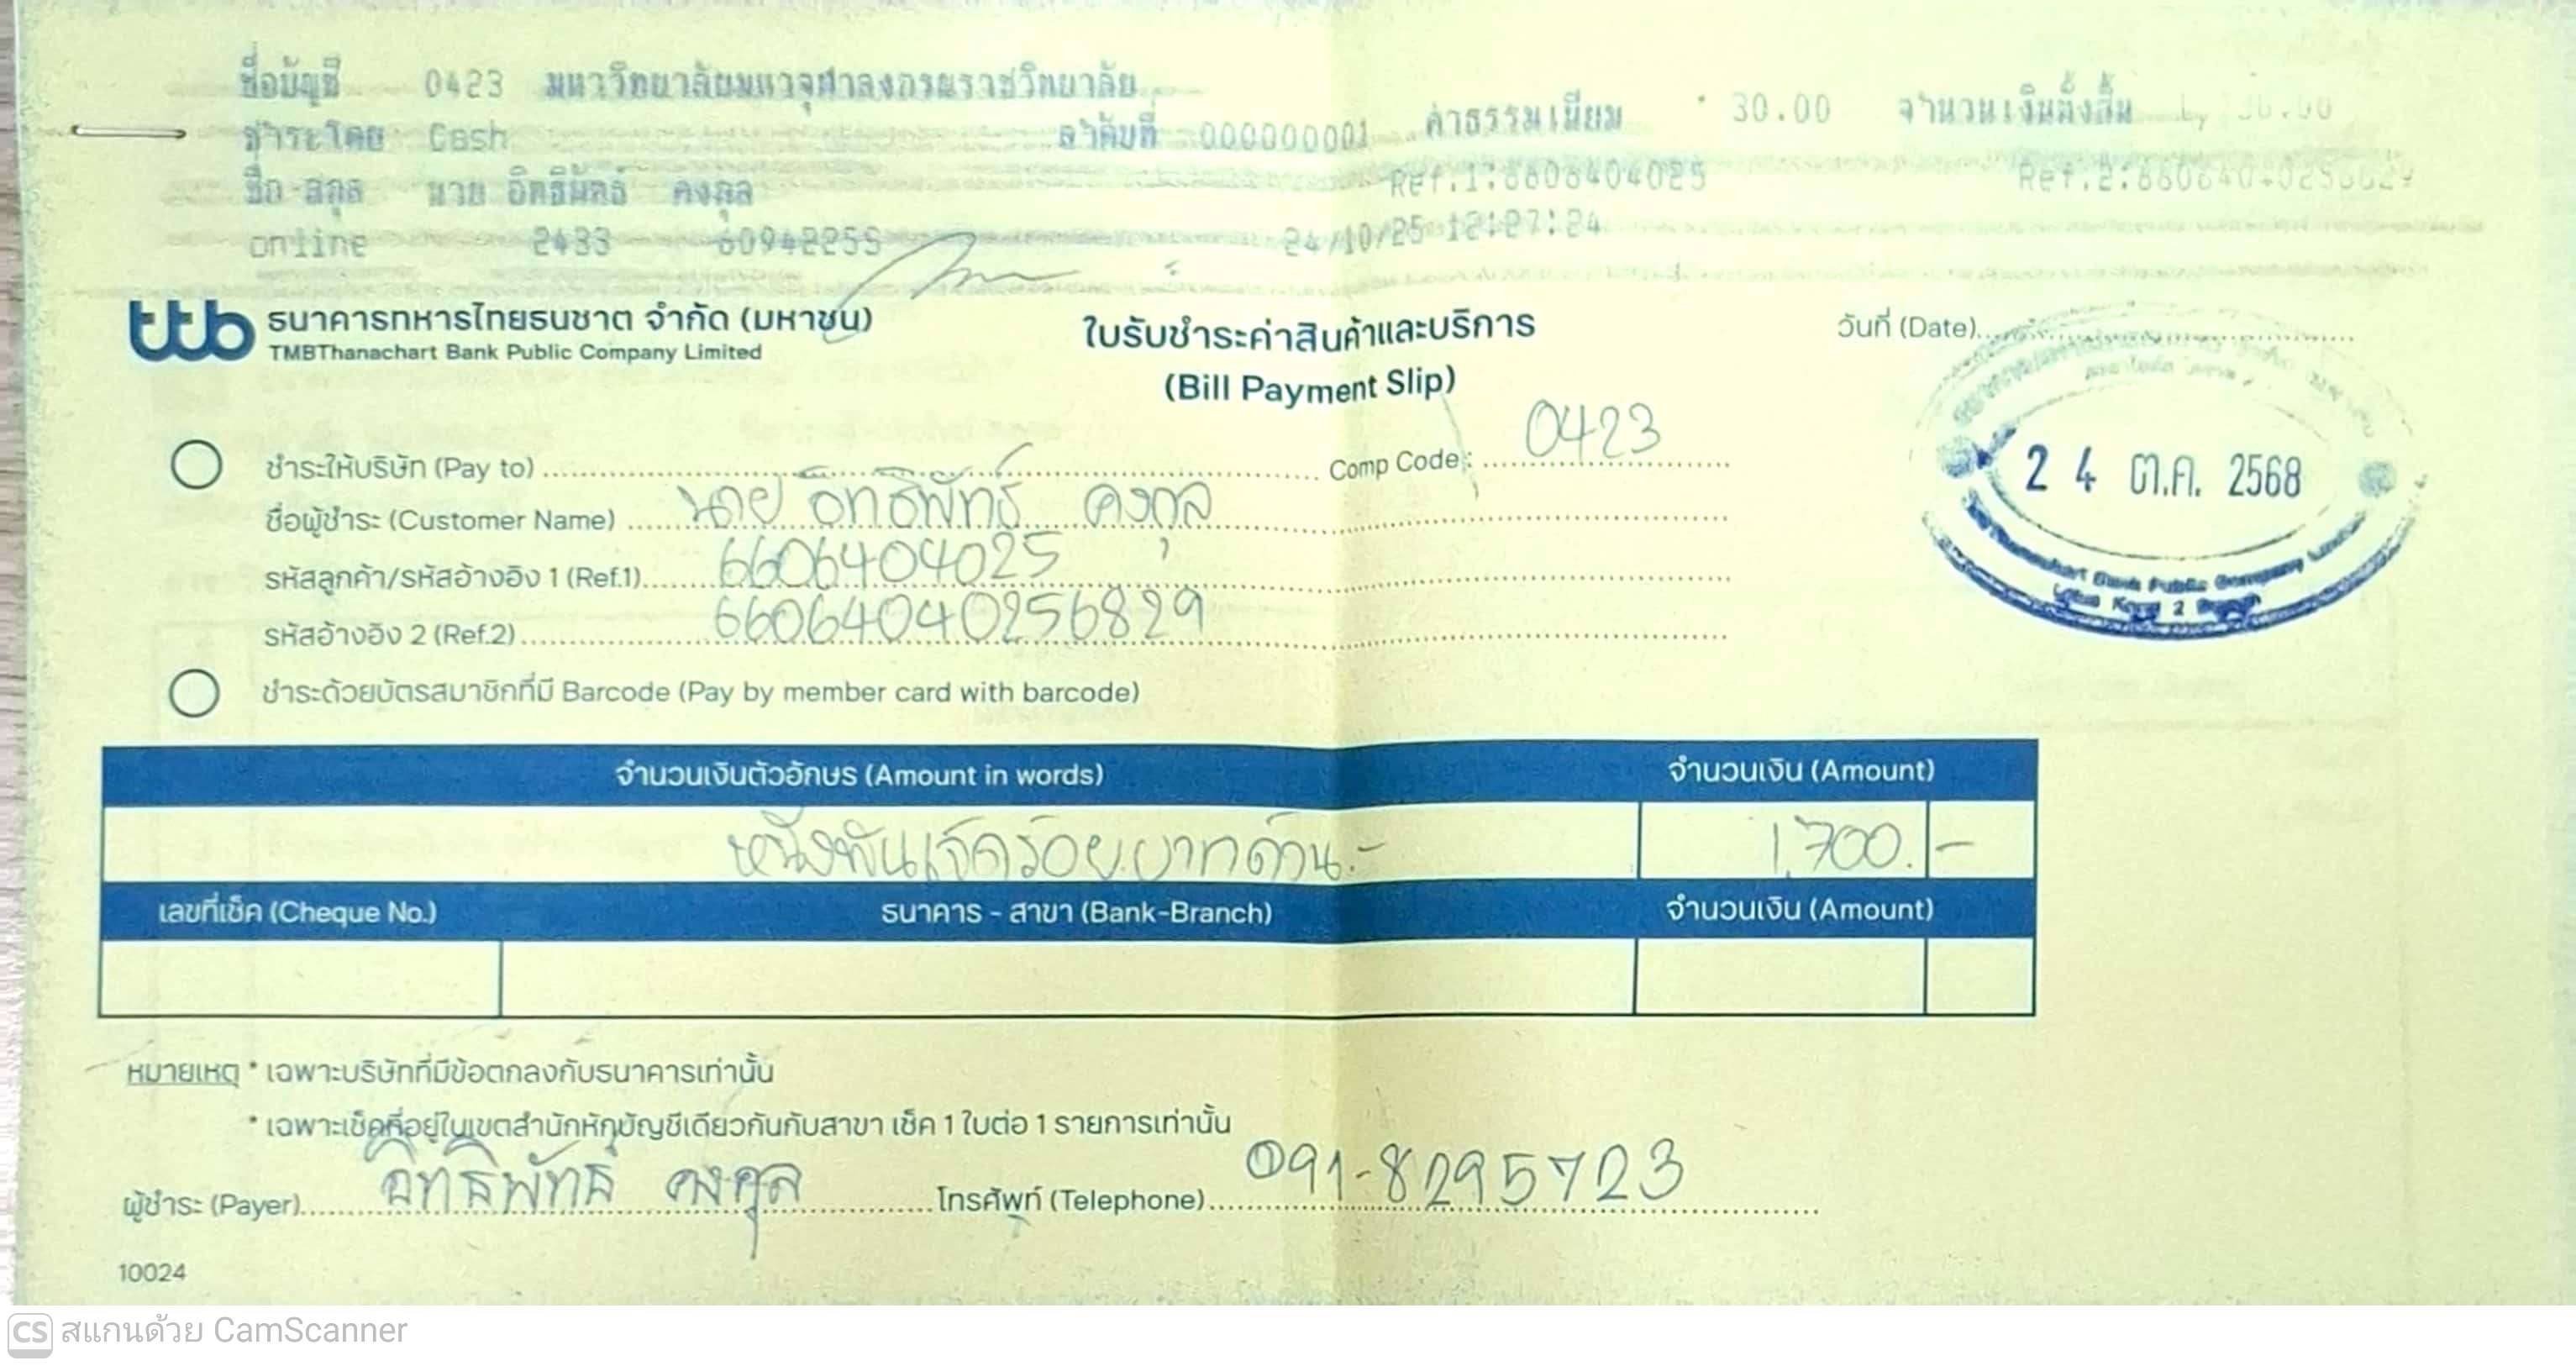 ชื่อบัญชี 0423 มหาวิทยาลัยมหาจุฬาลงกรณราชวิทยาลัย
ชำระโดย Cash ลำดับที่ 000000001 ค่าธรรมเนียม 30.00 จำนวนเงินทั้งสิ้น
ชื่อ สกุล นาย อิทธิพัทธ์ คงกุล Ref.1:6606404025
online 2433 24/10/25 12:27:24
ttb ธนาคารทหารไทยธนชาต จำกัด (มหาชน)
TMBThanachart Bank Public Company Limited
ใบรับชำระค่าสินค้าและบริการ
(Bill Payment Slip)
วันที่ (Date)
24 ต.ค. 2568
Thanachart Bank Public Company Limited
2 Branch
ชำระให้บริษัท (Pay to) Comp Code : 0423
ชื่อผู้ชำระ (Customer Name) นาย อิทธิพัทธ์ คงกุล
รหัสลูกค้า/รหัสอ้างอิง 1 (Ref.1) 6606404025
รหัสอ้างอิง 2 (Ref.2) 66064040256829
ชำระด้วยบัตรสมาชิกที่มี Barcode (Pay by member card with barcode)
จำนวนเงินตัวอักษร (Amount in words) จำนวนเงิน (Amount)
หนึ่งพันเจ็ดร้อยบาทถ้วน.- 1,700.-
เลขที่เช็ค (Cheque No.) ธนาคาร - สาขา (Bank-Branch) จำนวนเงิน (Amount)
หมายเหตุ * เฉพาะบริษัทที่มีข้อตกลงกับธนาคารเท่านั้น
* เฉพาะเช็คที่อยู่ในเขตสำนักหักบัญชีเดียวกันกับสาขา เช็ค 1 ใบต่อ 1 รายการเท่านั้น
ผู้ชำระ (Payer) อิทธิพัทธ์ คงกุล โทรศัพท์ (Telephone) 091-8295723
10024
CS สแกนด้วย CamScanner